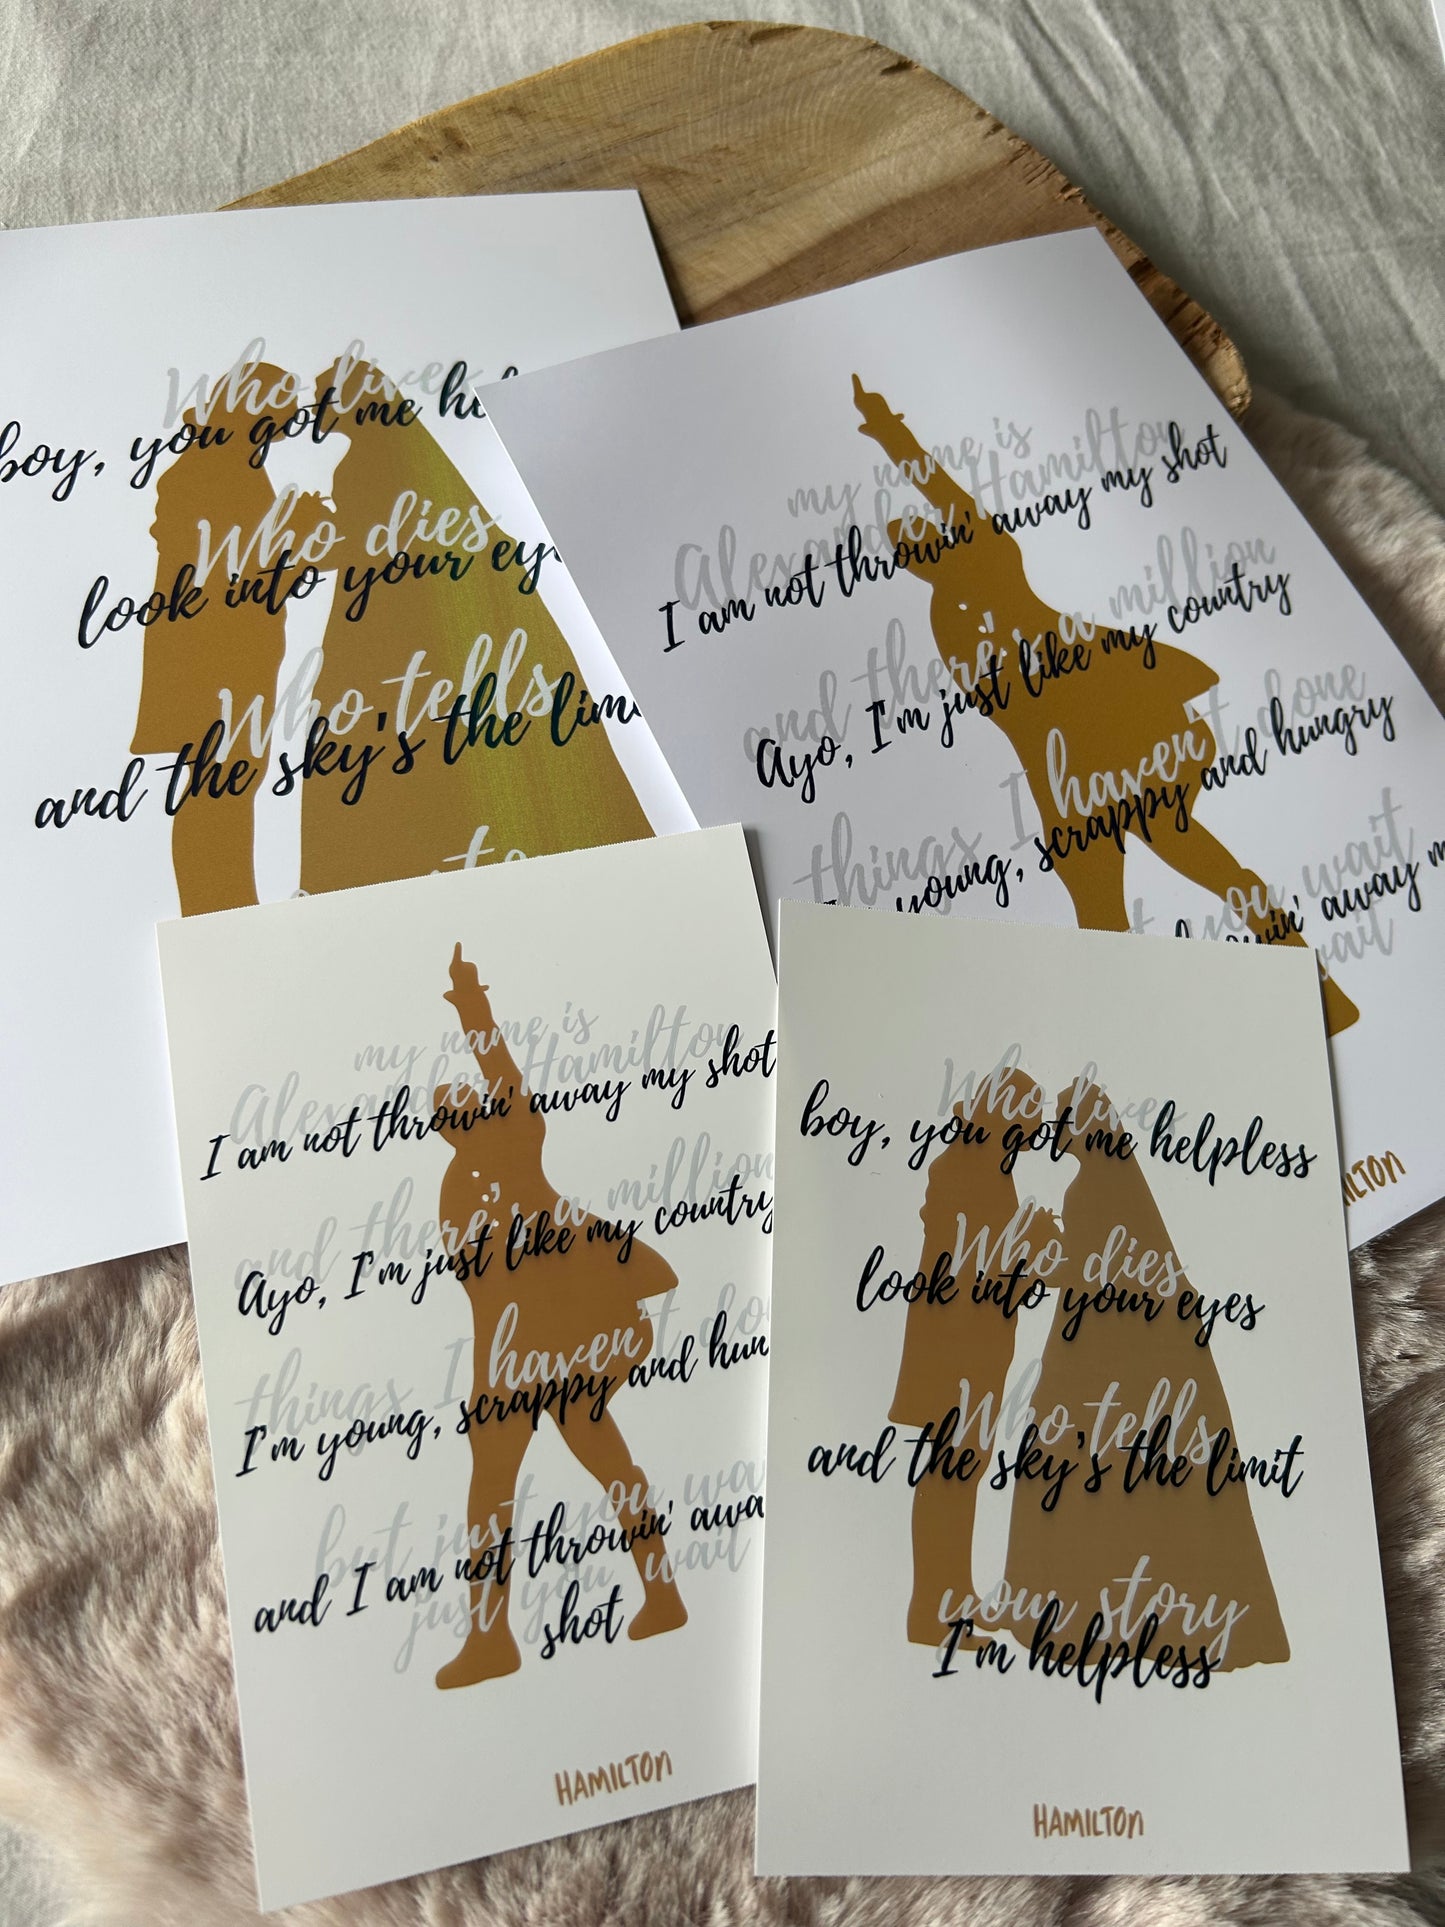 Who lives
boy, you got me
Who dies
look into your
Who tells
and the sky's the
my name is
Alexander Hamilton
I am not throwin' away my shot
and there's a million
Ayo, I'm just like my country
things I haven't done
young, scrappy and hungry
you wait
throwin' away
wait
my name is
Alexander Hamilton
I am not throwin' away my shot
and there's a million
Ayo, I'm just like my country
things I haven't
I'm young, scrappy and
but just you
and I am not throwin'
just you wait
shot
HAMILTON
Who lives
boy, you got me helpless
Who dies
look into your eyes
Who tells
and the sky's the limit
your story
I'm helpless
HAMILTON